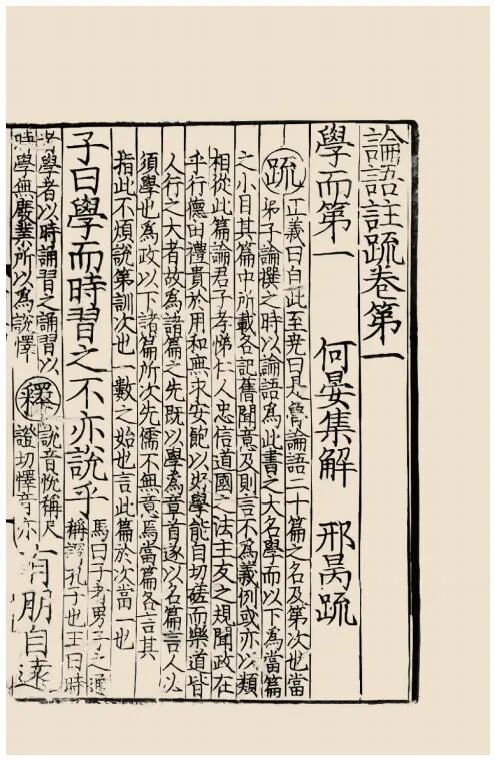 論語註䟽卷第一
學而第一 何晏集解 邢昺䟽
䟽 正義曰自此至堯曰是魯論語二十篇之名及第次也當
弟子論撰之時以論語爲此書之大名學而以下爲當篇
之小目其篇中所載各記舊聞意及則言不爲義例或亦以類
相從此篇論君子孝悌仁人忠信道國之法主友之規聞政在
乎行德由禮貴於用和無求安飽以好學能自切磋而樂道皆
人行之大者故爲諸篇之先既以學爲章首遂以名篇言人必
須學也爲政以下諸篇所次先儒不無意焉當篇各言其
指此不煩說第訓次也一數之始也言此篇於次當一也
子曰學而時習之不亦說乎 馬曰子者男子之通
稱謂孔子也王曰時
學者以時誦習之誦習以
時學無廢業所以爲說懌
釋 說音悅稱尺
證切懌音亦
有朋自遠